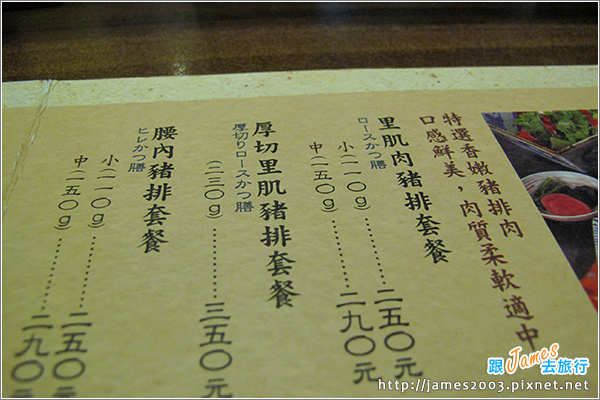 特選香嫩豬排肉
口感鮮美，肉質柔軟適中
里肌肉豬排套餐
ロースかつ膳
小(一一〇g)………二五〇元
中(一五〇g)………二九〇元
厚切里肌豬排套餐
厚切りロースかつ膳
(二三〇g)………三五〇元
腰內豬排套餐
ヒレかつ膳
小(一一〇g)………二五〇元
中(一五〇g)………二九〇元
跟James去旅行
http://james2003.pixnet.net